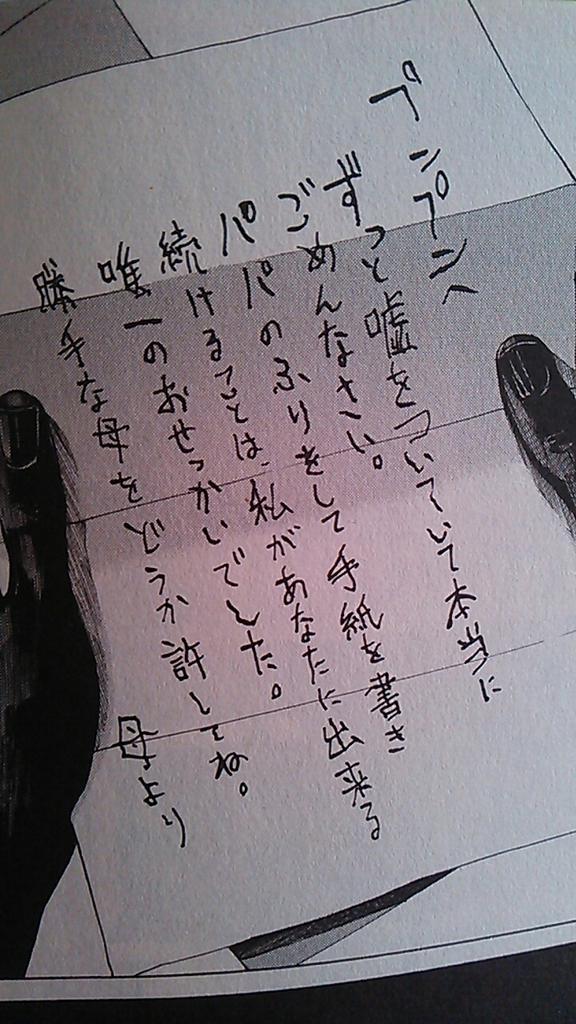 プンプンへ
ずっと嘘をついていて本当に
ごめんなさい。
パパのふりをして手紙を書き
続けることは、私があなたに出来る
唯一のおせっかいでした。
勝手な母をどうか許してね。
母より